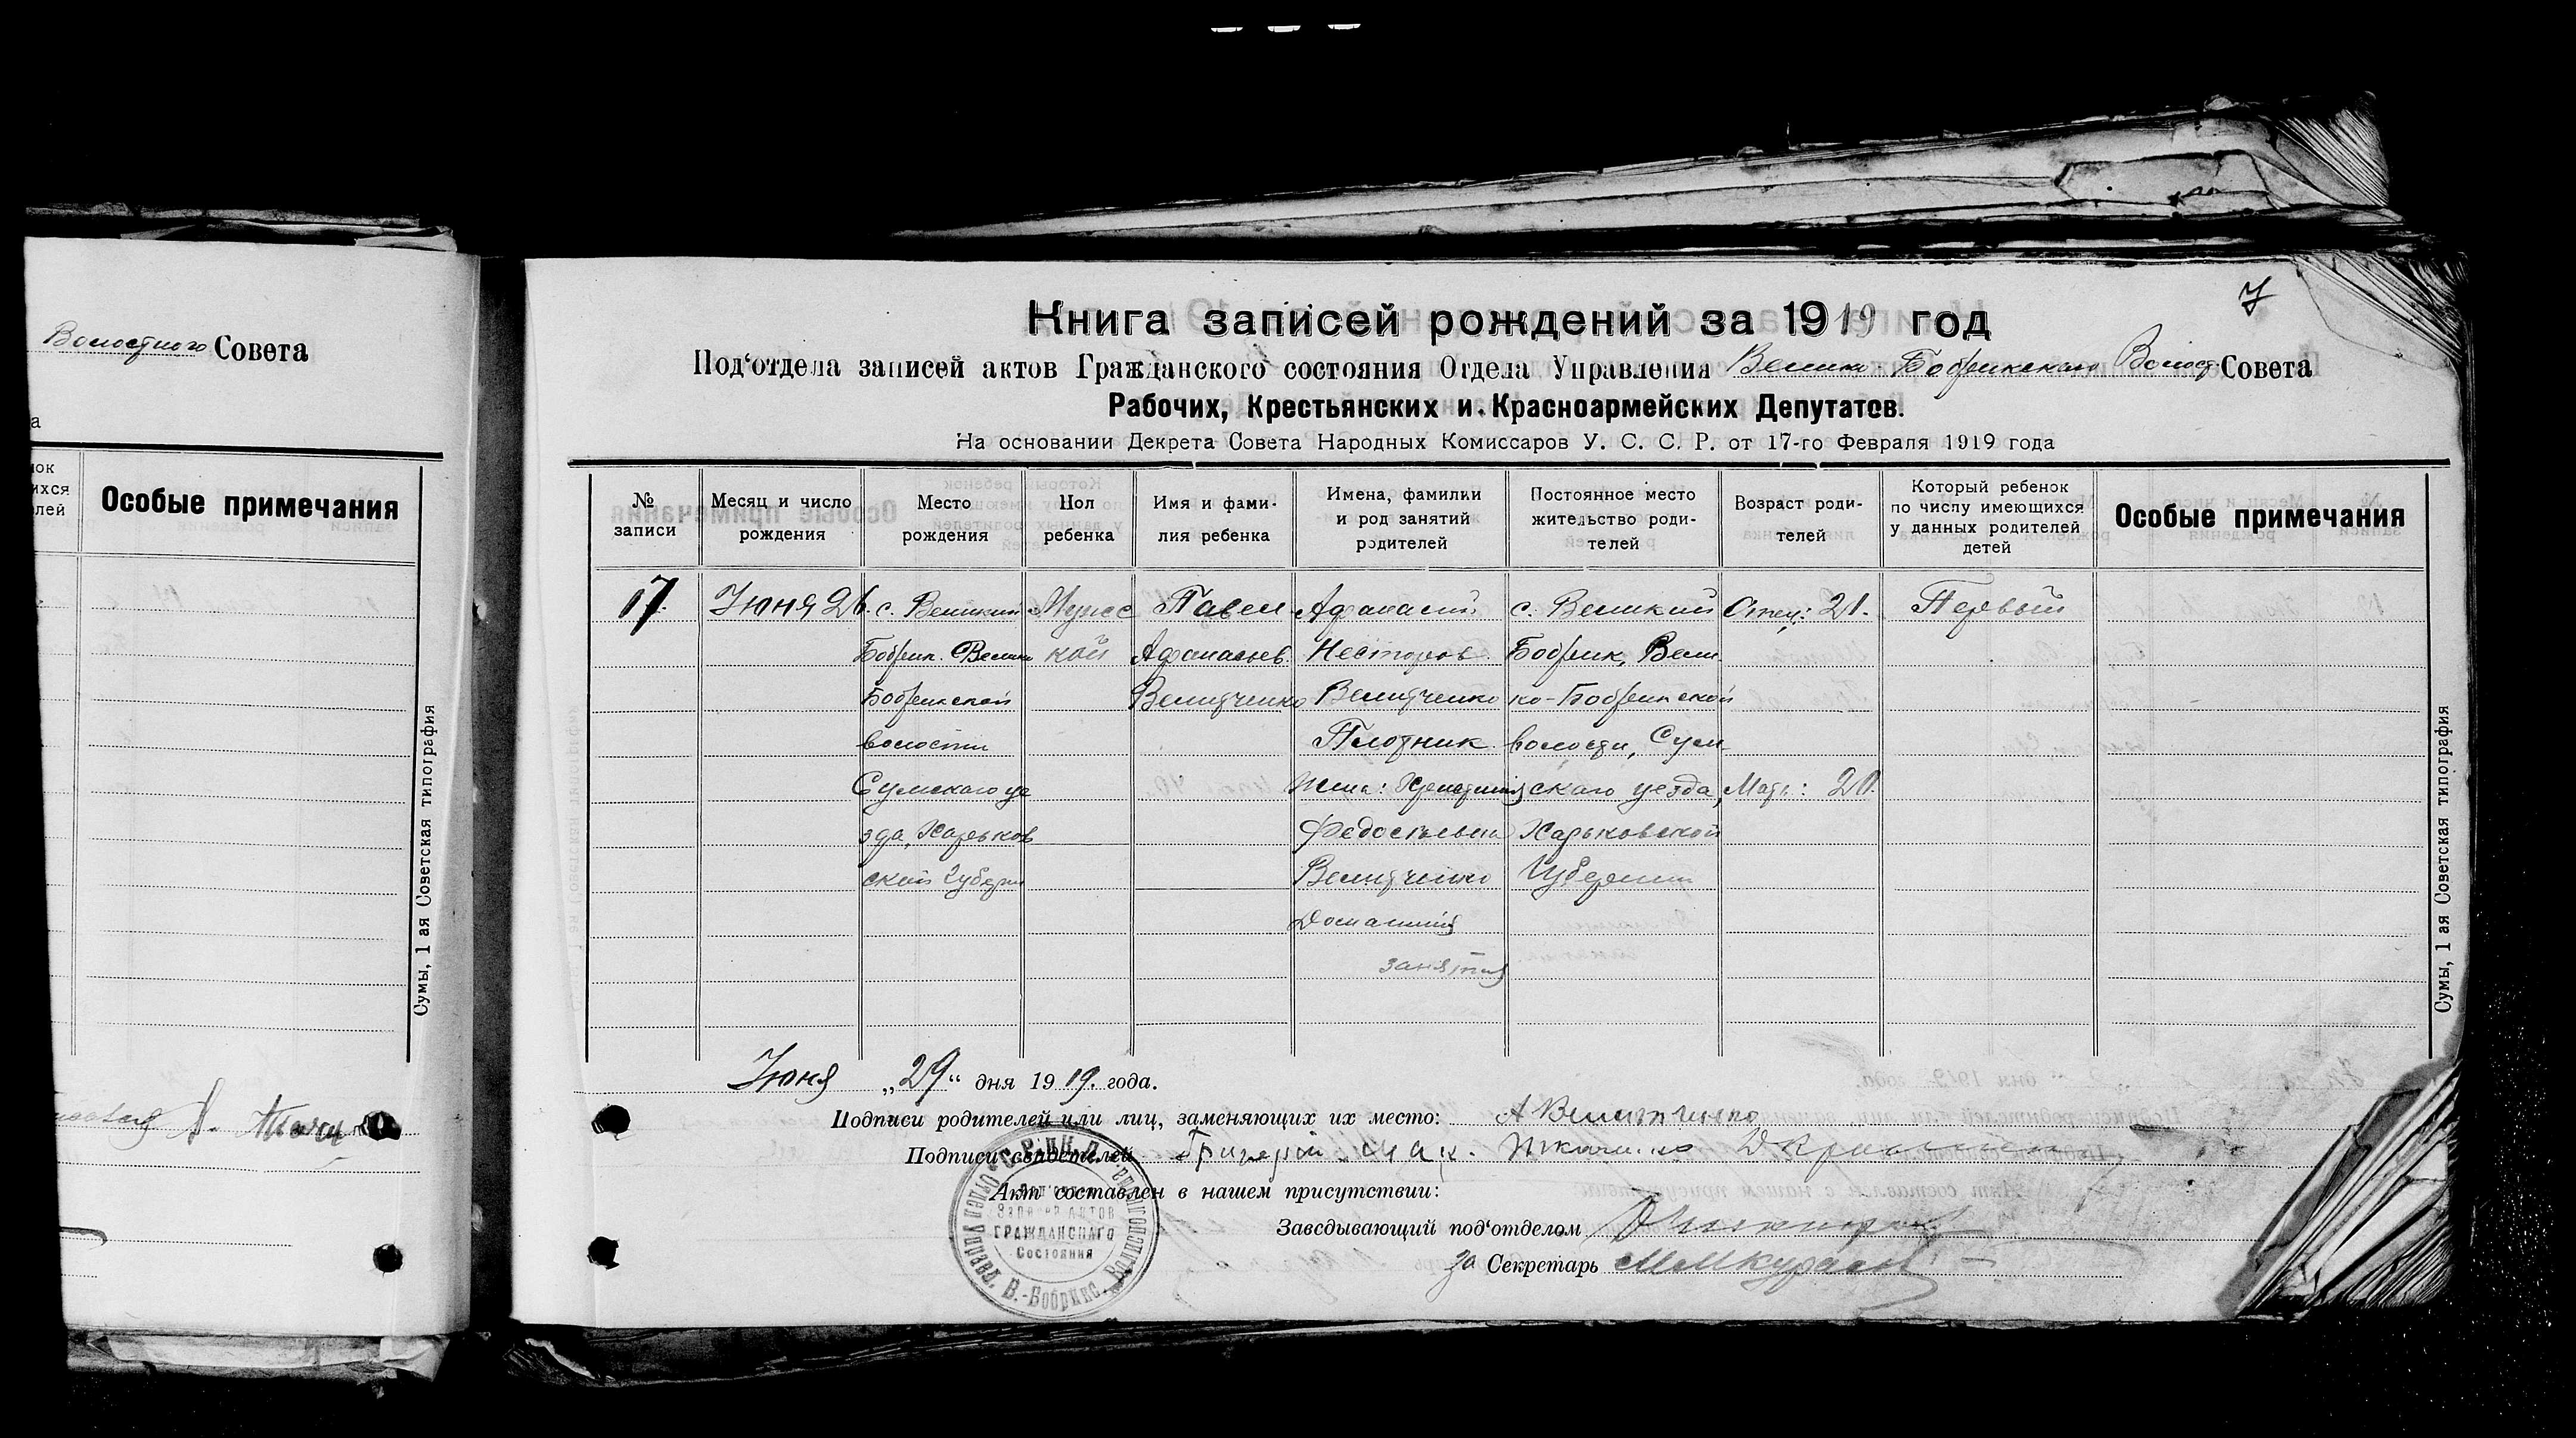 Волостного Совета
а
Особые примечания
Сумы, 1 ая Советская типография
7
Книга записей рождений за 1919 год
Под'отдела записей актов Гражданского состояния Отдела Управления Велико-Бобрикского Волост Совета
Рабочих, Крестьянских и Красноармейских Депутатов.
На основании Декрета Совета Народных Комиссаров У. С. С. Р. от 17-го Февраля 1919 года
№ записи
Месяц и число рождения
Место рождения
Пол ребенка
Имя и фами-
лия ребенка
Имена, фамилии
и род занятий
родителей
Постоянное место
жительство роди-
телей
Возраст роди-
телей
Который ребенок
по числу имеющихся
у данных родителей
детей
Особые примечания
17.
Июня 26.
с. Великий
Бобрик. Велико
Бобрикской
волости
Сумскаго уе
зда, Харьков
ской Губерн
Мужс
кой
Павел
Афанасьев.
Велитченко
Афанасий
Несторов
Велитченко
Плотник.
Жена: Христиния
Федосьевна
Велитченко
Домашния
занятия
с. Великий
Бобрик, Вели
ко-Бобрикской
волости, Сум
скаго уезда,
Харьковской
Губернии
Отец: 21.
Мать: 20
Первый
Сумы, 1 ая Советская типография
Июня „29“ дня 1919. года.
Подписи родителей или лиц, заменяющих их место: А Велитченко
Подписи свидетелей Григорий
Акт составлен в нашем присутствии:
Заведывающий под'отделом
за Секретарь
Записей актов
Гражданскаго
Состояния
Отдел Управл. В.-Бобрикс.